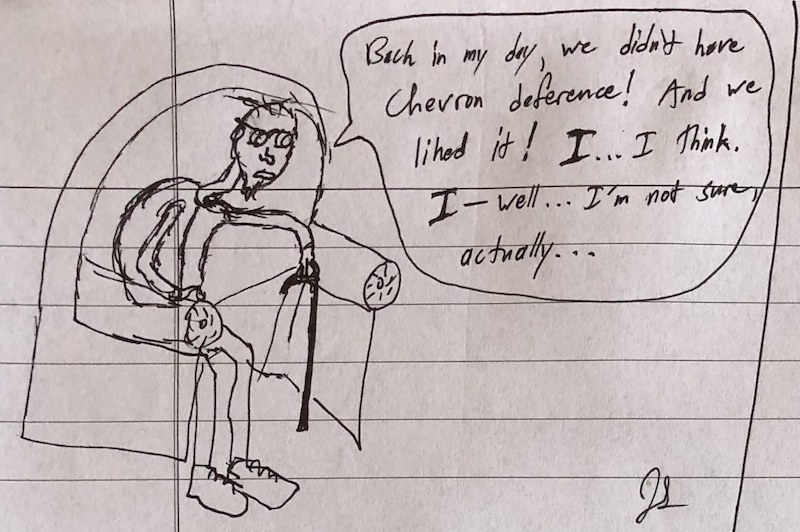 Back in my day, we didn't have
Chevron deference! And we
liked it! I... I think.
I – well... I'm not sure,
actually...
JS